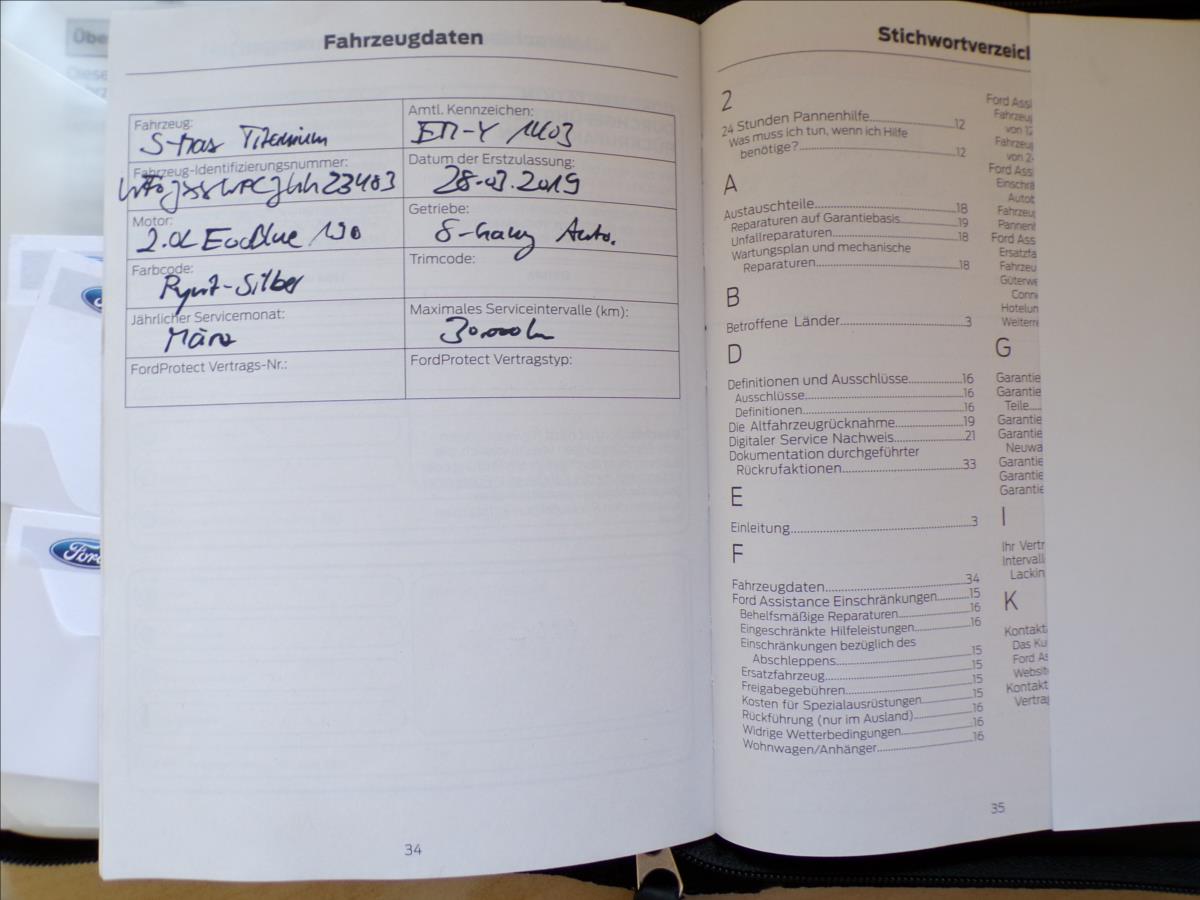 Übe
Diese
Ford
Fahrzeugdaten
Fahrzeug:
S-Max Titanium
Amtl. Kennzeichen:
Fahrzeug-Identifizierungsnummer:
Datum der Erstzulassung:
28.03.2019
Motor:
2.0L EcoBlue 190
Getriebe:
8-Gang Auto.
Farbcode:
Pyrit-Silber
Trimcode:
Jährlicher Servicemonat:
März
Maximales Serviceintervalle (km):
30.000km
FordProtect Vertrags-Nr.:
FordProtect Vertragstyp:
34
Stichwortverzeicl
2
24 Stunden Pannenhilfe 12
Was muss ich tun, wenn ich Hilfe
benötige? 12
A
Austauschteile 18
Reparaturen auf Garantiebasis 19
Unfallreparaturen 18
Wartungsplan und mechanische
Reparaturen 18
B
Betroffene Länder 3
D
Definitionen und Ausschlüsse 16
Ausschlüsse 16
Definitionen 16
Die Altfahrzeugrücknahme 19
Digitaler Service Nachweis 21
Dokumentation durchgeführter
Rückrufaktionen 33
E
Einleitung 3
F
Fahrzeugdaten 34
Ford Assistance Einschränkungen 15
Behelfsmäßige Reparaturen 16
Eingeschränkte Hilfeleistungen 16
Einschränkungen bezüglich des
Abschleppens 15
Ersatzfahrzeug 15
Freigabegebühren 15
Kosten für Spezialausrüstungen 15
Rückführung (nur im Ausland) 16
Widrige Wetterbedingungen 16
Wohnwagen/Anhänger 16
Ford Assi
Fahrzeu
von 12
Fahrzeu
von 2
Ford Ass
Einschrä
Autob
Fahrzeu
Pannen
Ford Ass
Ersatzfa
Fahrzeu
Güterwe
Conn
Hotelun
Weiterre
G
Garantie
Garantie
Teile
Garantie
Garantie
Neuwa
Garantie
Garantie
Garantie
I
Ihr Vertr
Intervall
Lackin
K
Kontakt
Das Ku
Ford As
Websit
Kontakt
Vertrag
35